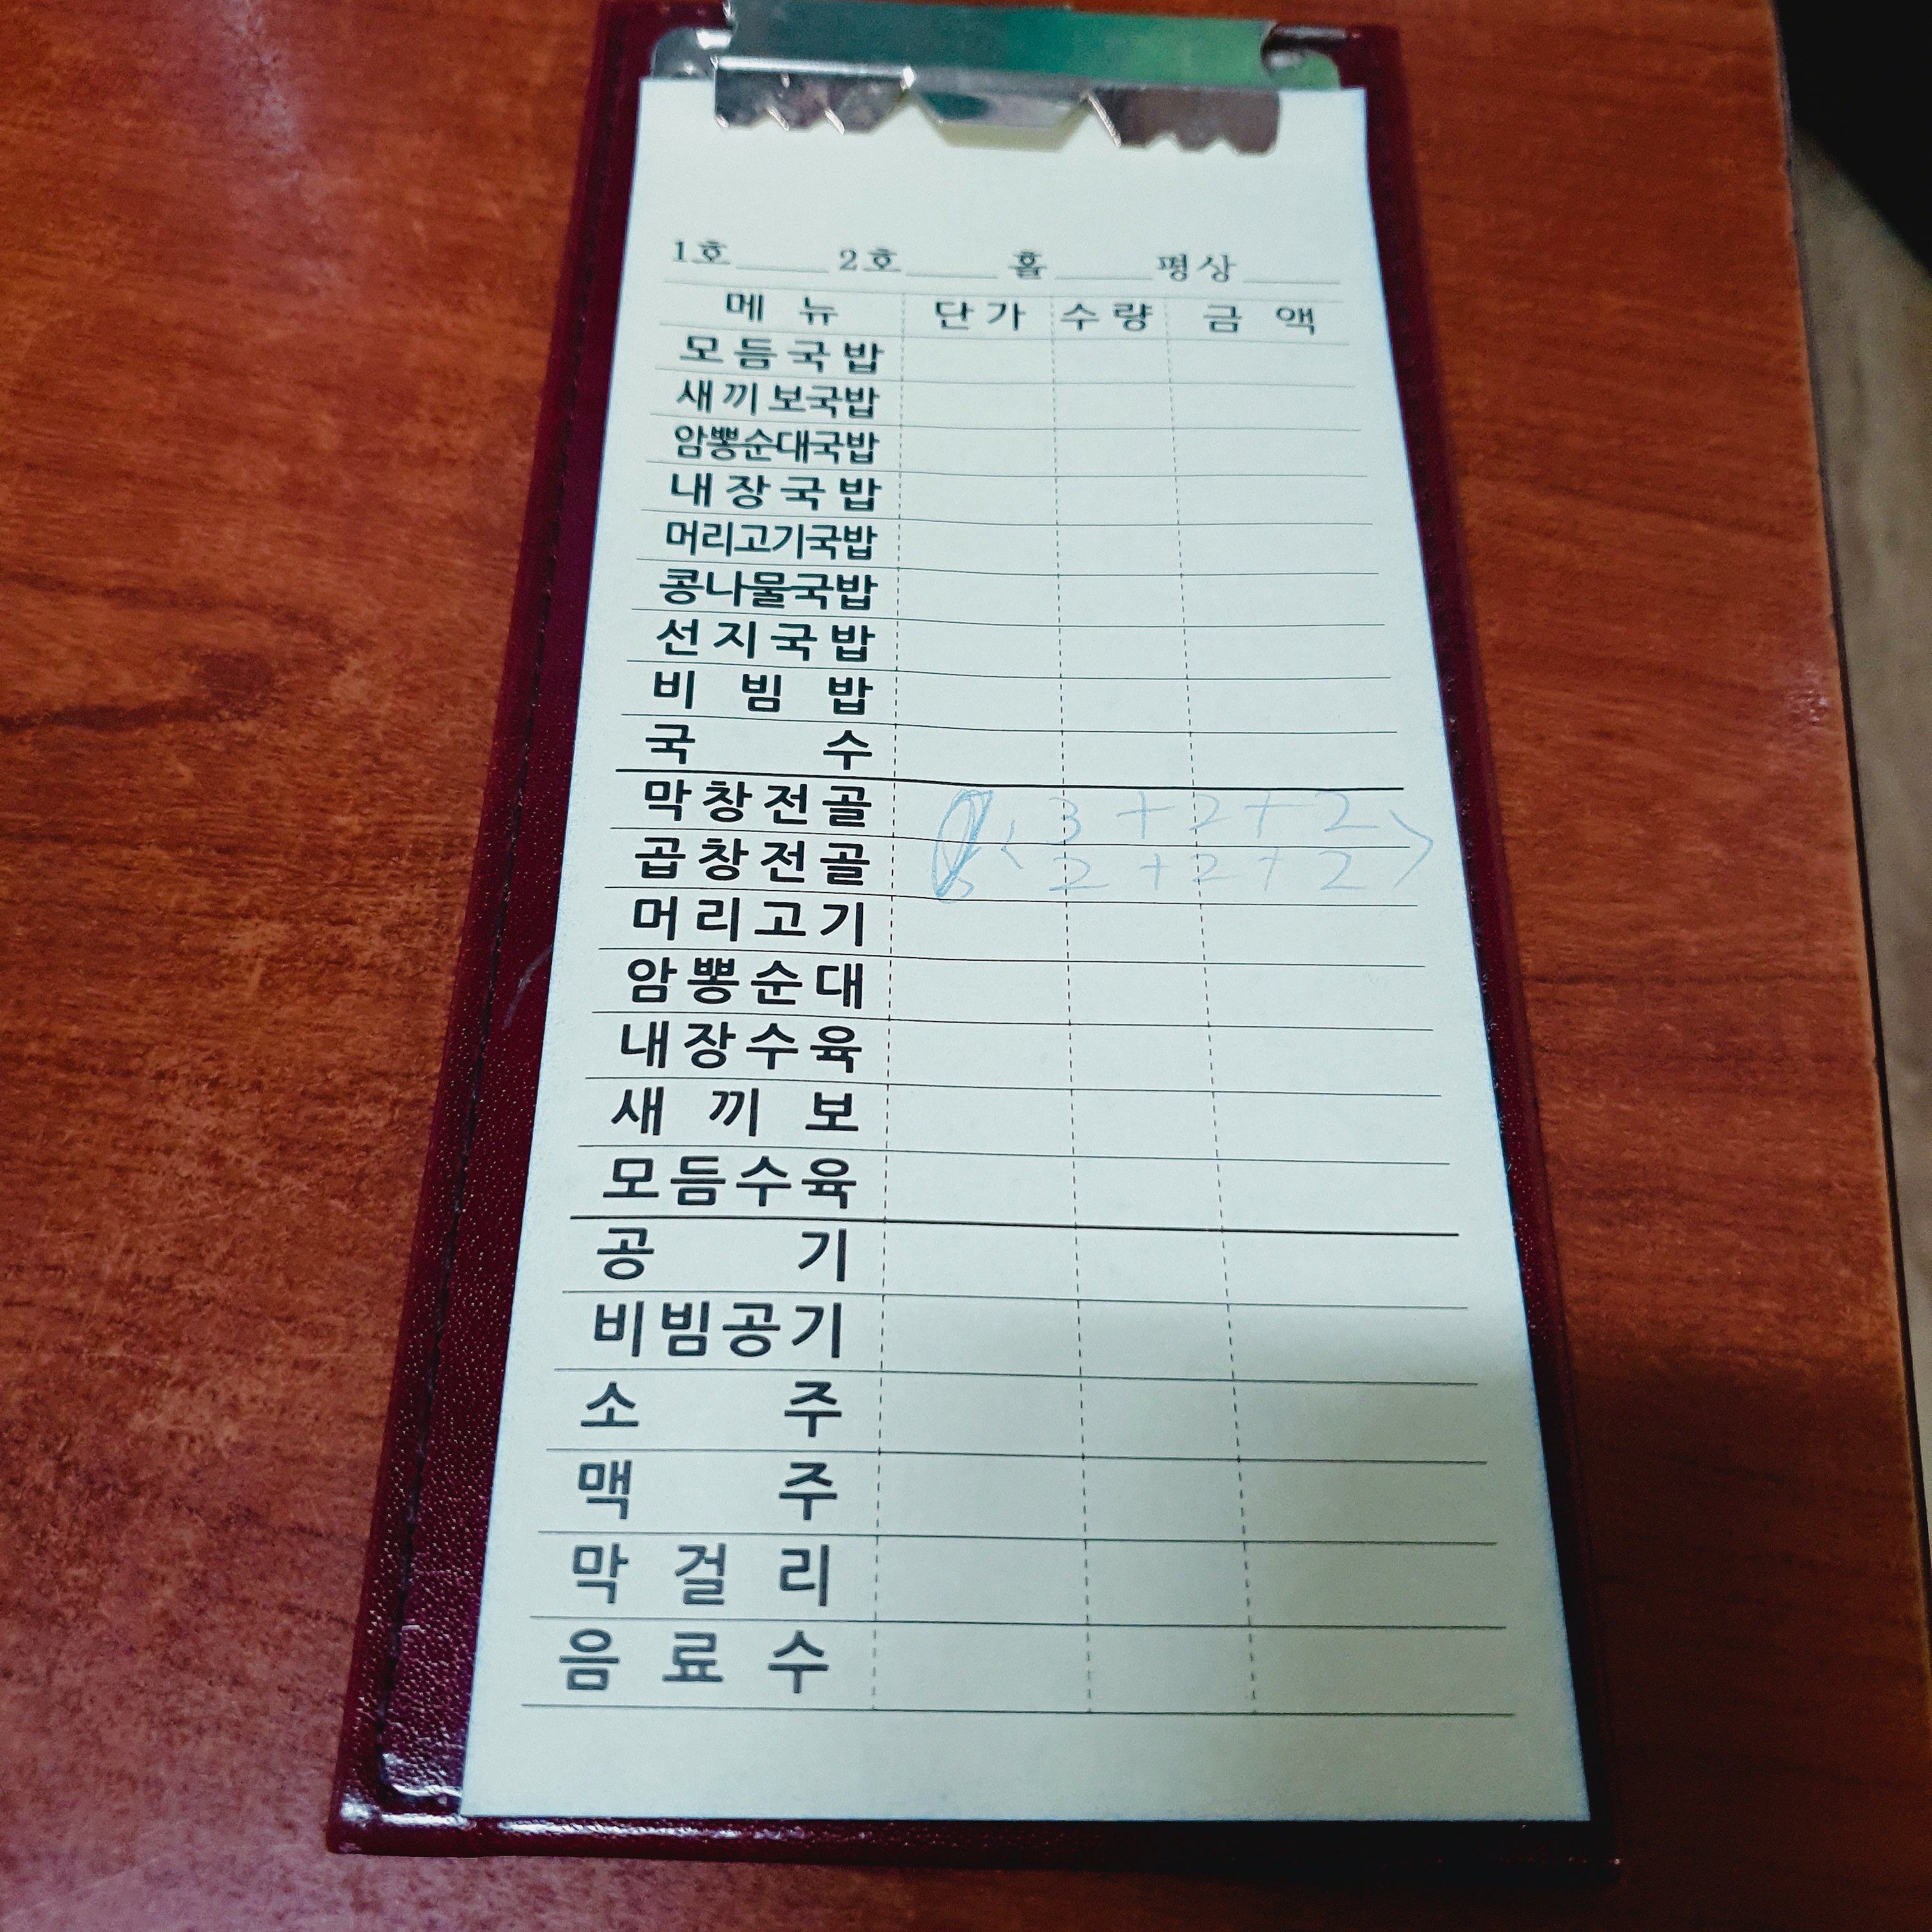 1호 2호 홀 평상
메뉴 단가 수량 금액
모듬국밥
새끼보국밥
암뽕순대국밥
내장국밥
머리고기국밥
콩나물국밥
선지국밥
비빔밥
국수
막창전골 3+2+2
곱창전골 2+2+2
머리고기
암뽕순대
내장수육
새끼보
모듬수육
공기
비빔공기
소주
맥주
막걸리
음료수